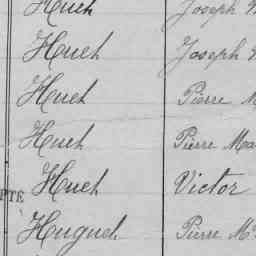 Huet Joseph
Huet Joseph
Huet Pierre
Huet Pierre Ma
Huet Victor
PTE
Huguet Pierre M